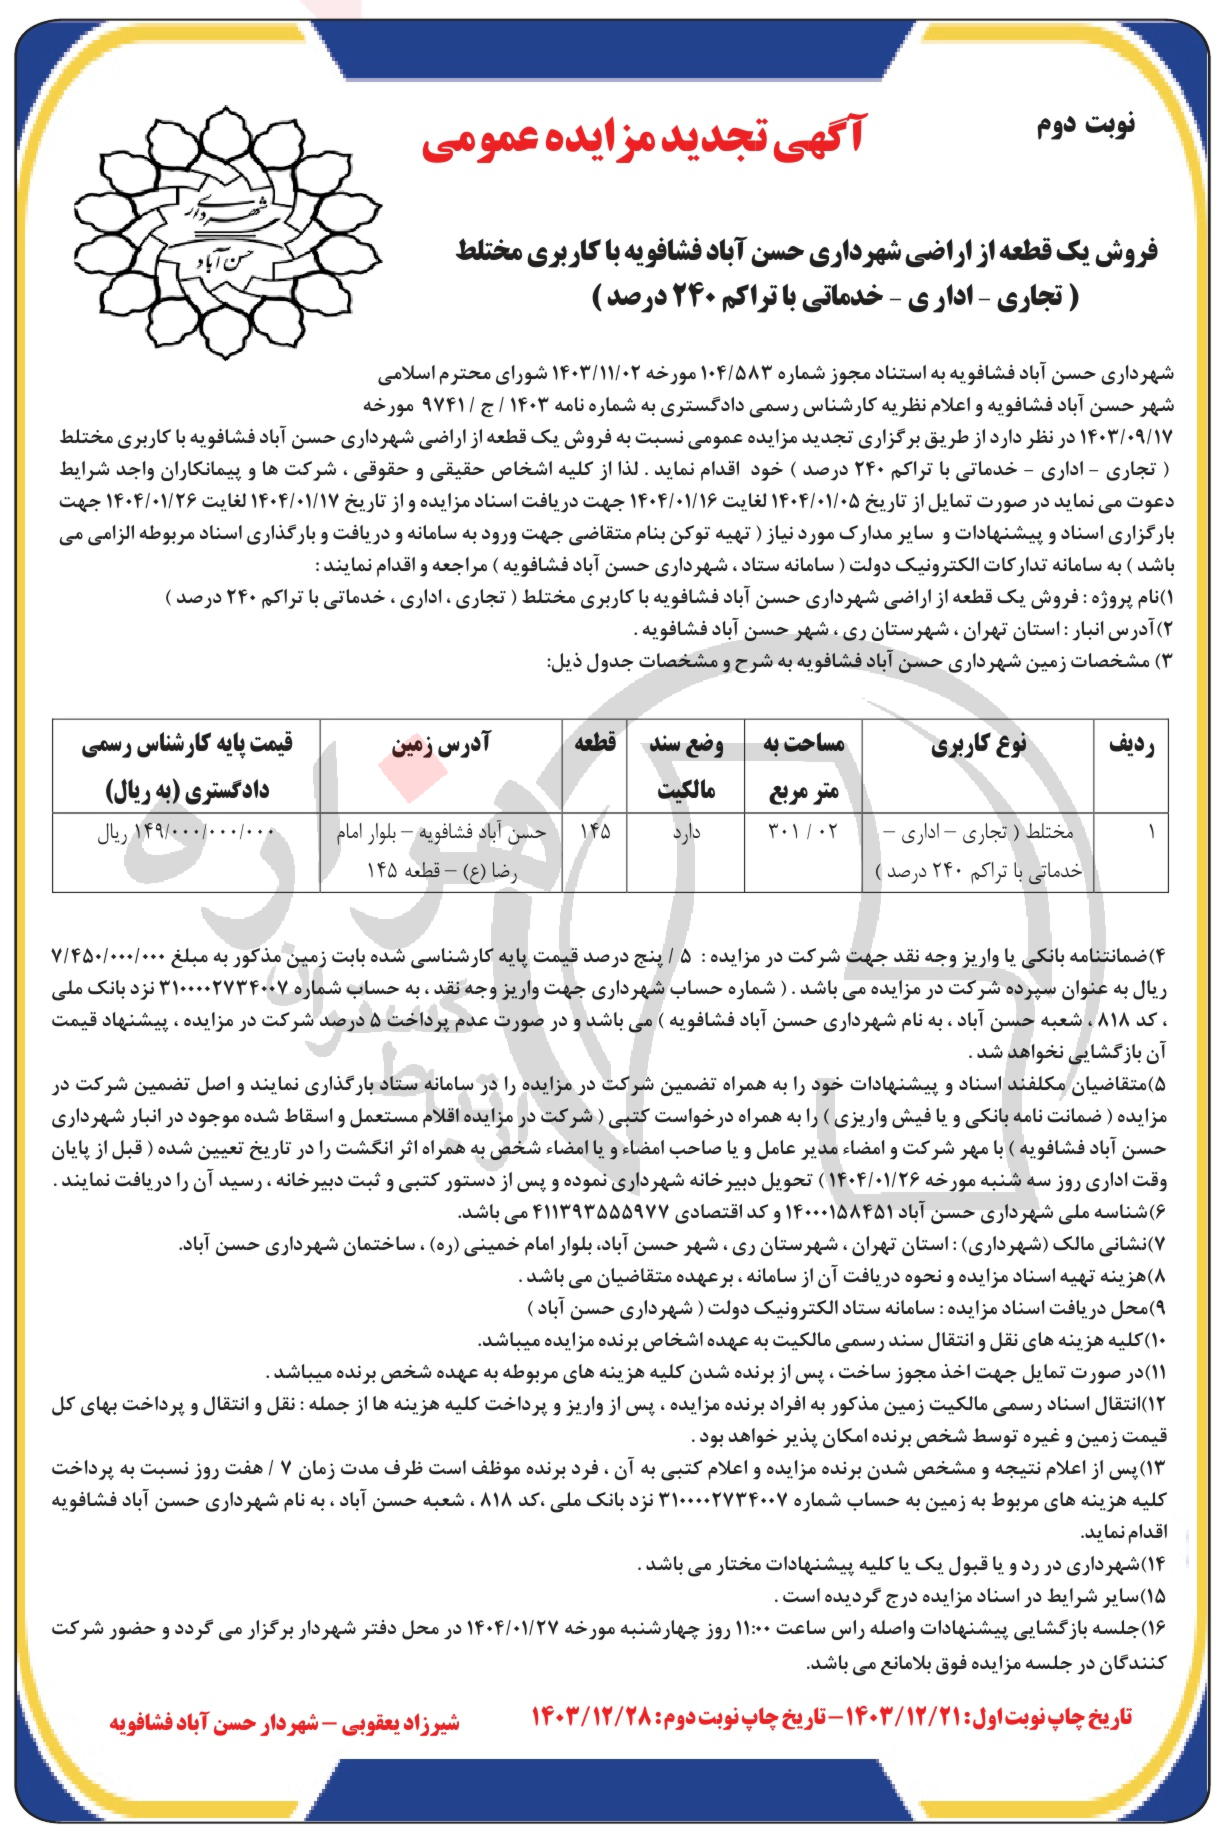 نوبت دوم
آگهی تجدید مزایده عمومی
شهرداری
حسن آباد
فروش یک قطعه از اراضی شهرداری حسن آباد فشافویه با کاربری مختلط
( تجاری - اداری - خدماتی با تراکم ۲۴۰ درصد )
شهرداری حسن آباد فشافویه به استناد مجوز شماره ۱۰۴/۵۸۳ مورخه ۱۴۰۳/۱۱/۰۲ شورای محترم اسلامی
شهر حسن آباد فشافویه و اعلام نظریه کارشناس رسمی دادگستری به شماره نامه ۱۴۰۳ / ج / ۹۷۴۱ مورخه
۱۴۰۳/۰۹/۱۷ در نظر دارد از طریق برگزاری تجدید مزایده عمومی نسبت به فروش یک قطعه از اراضی شهرداری حسن آباد فشافویه با کاربری مختلط
( تجاری - اداری - خدماتی با تراکم ۲۴۰ درصد ) خود اقدام نماید . لذا از کلیه اشخاص حقیقی و حقوقی ، شرکت ها و پیمانکاران واجد شرایط
دعوت می نماید در صورت تمایل از تاریخ ۱۴۰۴/۰۱/۰۵ لغایت ۱۴۰۴/۰۱/۱۶ جهت دریافت اسناد مزایده و از تاریخ ۱۴۰۴/۰۱/۱۷ لغایت ۱۴۰۴/۰۱/۲۶ جهت
بارگزاری اسناد و پیشنهادات و سایر مدارک مورد نیاز ( تهیه توکن بنام متقاضی جهت ورود به سامانه و دریافت و بارگذاری اسناد مربوطه الزامی می
باشد ) به سامانه تدارکات الکترونیک دولت ( سامانه ستاد ، شهرداری حسن آباد فشافویه ) مراجعه و اقدام نمایند :
۱)نام پروژه : فروش یک قطعه از اراضی شهرداری حسن آباد فشافویه با کاربری مختلط ( تجاری ، اداری ، خدماتی با تراکم ۲۴۰ درصد )
۲)آدرس انبار : استان تهران ، شهرستان ری ، شهر حسن آباد فشافویه .
۳) مشخصات زمین شهرداری حسن آباد فشافویه به شرح و مشخصات جدول ذیل:
ردیف نوع کاربری مساحت به وضع سند قطعه آدرس زمین قیمت پایه کارشناس رسمی
متر مربع مالکیت دادگستری (به ریال)
۱ مختلط ( تجاری – اداری – ۳۰۱ / ۰۲ دارد ۱۴۵ حسن آباد فشافویه – بلوار امام ۱۴۹/۰۰۰/۰۰۰/۰۰۰ ریال
خدماتی با تراکم ۲۴۰ درصد ) رضا (ع) – قطعه ۱۴۵
۴)ضمانتنامه بانکی یا واریز وجه نقد جهت شرکت در مزایده : ۵ / پنج درصد قیمت پایه کارشناسی شده بابت زمین مذکور به مبلغ ۷/۴۵۰/۰۰۰/۰۰۰
ریال به عنوان سپرده شرکت در مزایده می باشد . ( شماره حساب شهرداری جهت واریز وجه نقد ، به حساب شماره ۳۱۰۰۰۰۲۷۳۴۰۰۷ نزد بانک ملی
، کد ۸۱۸ ، شعبه حسن آباد ، به نام شهرداری حسن آباد فشافویه ) می باشد و در صورت عدم پرداخت ۵ درصد شرکت در مزایده ، پیشنهاد قیمت
آن بازگشایی نخواهد شد .
۵)متقاضیان مکلفند اسناد و پیشنهادات خود را به همراه تضمین شرکت در مزایده را در سامانه ستاد بارگذاری نمایند و اصل تضمین شرکت در
مزایده ( ضمانت نامه بانکی و یا فیش واریزی ) را به همراه درخواست کتبی ( شرکت در مزایده اقلام مستعمل و اسقاط شده موجود در انبار شهرداری
حسن آباد فشافویه ) با مهر شرکت و امضاء مدیر عامل و یا صاحب امضاء و یا امضاء شخص به همراه اثر انگشت را در تاریخ تعیین شده ( قبل از پایان
وقت اداری روز سه شنبه مورخه ۱۴۰۴/۰۱/۲۶ ) تحویل دبیرخانه شهرداری نموده و پس از دستور کتبی و ثبت دبیرخانه ، رسید آن را دریافت نمایند .
۶)شناسه ملی شهرداری حسن آباد ۱۴۰۰۰۱۵۸۴۵۱ و کد اقتصادی ۴۱۱۳۹۳۵۵۵۹۷۷ می باشد.
۷)نشانی مالک (شهرداری) : استان تهران ، شهرستان ری ، شهر حسن آباد، بلوار امام خمینی (ره) ، ساختمان شهرداری حسن آباد.
۸)هزینه تهیه اسناد مزایده و نحوه دریافت آن از سامانه ، برعهده متقاضیان می باشد .
۹)محل دریافت اسناد مزایده : سامانه ستاد الکترونیک دولت ( شهرداری حسن آباد )
۱۰)کلیه هزینه های نقل و انتقال سند رسمی مالکیت به عهده اشخاص برنده مزایده میباشد.
۱۱)در صورت تمایل جهت اخذ مجوز ساخت ، پس از برنده شدن کلیه هزینه های مربوطه به عهده شخص برنده میباشد .
۱۲)انتقال اسناد رسمی مالکیت زمین مذکور به افراد برنده مزایده ، پس از واریز و پرداخت کلیه هزینه ها از جمله : نقل و انتقال و پرداخت بهای کل
قیمت زمین و غیره توسط شخص برنده امکان پذیر خواهد بود .
۱۳)پس از اعلام نتیجه و مشخص شدن برنده مزایده و اعلام کتبی به آن ، فرد برنده موظف است ظرف مدت زمان ۷ / هفت روز نسبت به پرداخت
کلیه هزینه های مربوط به زمین به حساب شماره ۳۱۰۰۰۰۲۷۳۴۰۰۷ نزد بانک ملی ،کد ۸۱۸ ، شعبه حسن آباد ، به نام شهرداری حسن آباد فشافویه
اقدام نماید.
۱۴)شهرداری در رد و یا قبول یک یا کلیه پیشنهادات مختار می باشد .
۱۵)سایر شرایط در اسناد مزایده درج گردیده است .
۱۶)جلسه بازگشایی پیشنهادات واصله راس ساعت ۱۱:۰۰ روز چهارشنبه مورخه ۱۴۰۴/۰۱/۲۷ در محل دفتر شهردار برگزار می گردد و حضور شرکت
کنندگان در جلسه مزایده فوق بلامانع می باشد.
تاریخ چاپ نوبت اول: ۱۴۰۳/۱۲/۲۱ – تاریخ چاپ نوبت دوم: ۱۴۰۳/۱۲/۲۸
شیرزاد یعقوبی – شهردار حسن آباد فشافویه